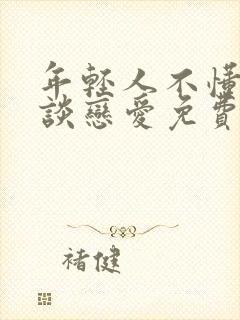 年輕人不懂
談戀愛免費
褚健